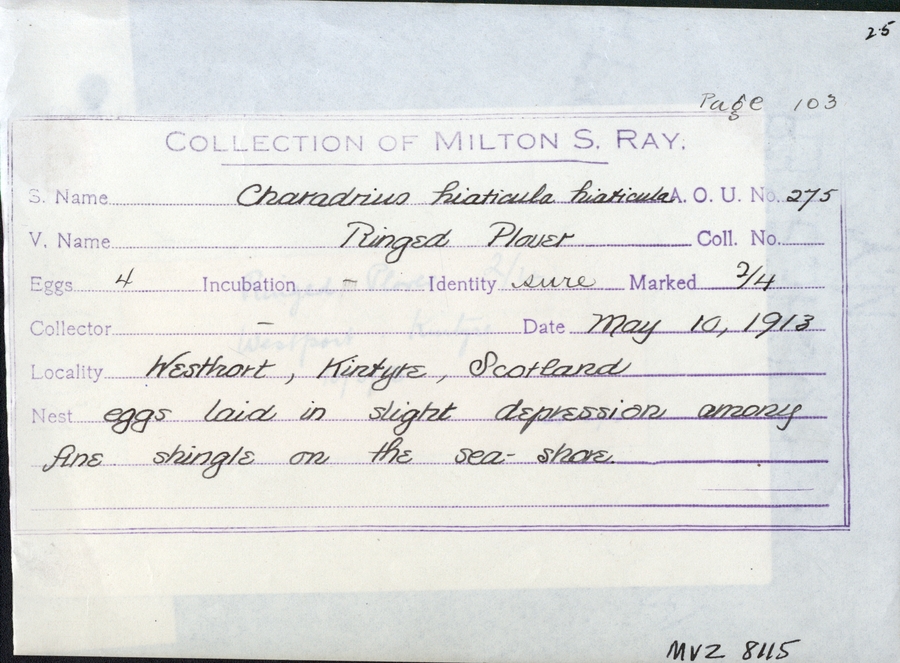 25
Page 103
COLLECTION OF MILTON S. RAY.
S. Name Charadrius hiaticula hiaticula A. O. U. No. 275
V. Name Ringed Plover Coll. No.
Eggs 4 Incubation - Identity sure Marked 2/4
Collector - Date May 10, 1913
Locality Westport, Kintyre, Scotland
Nest eggs laid in slight depression among
fine shingle on the sea-shore.
MVZ 8115